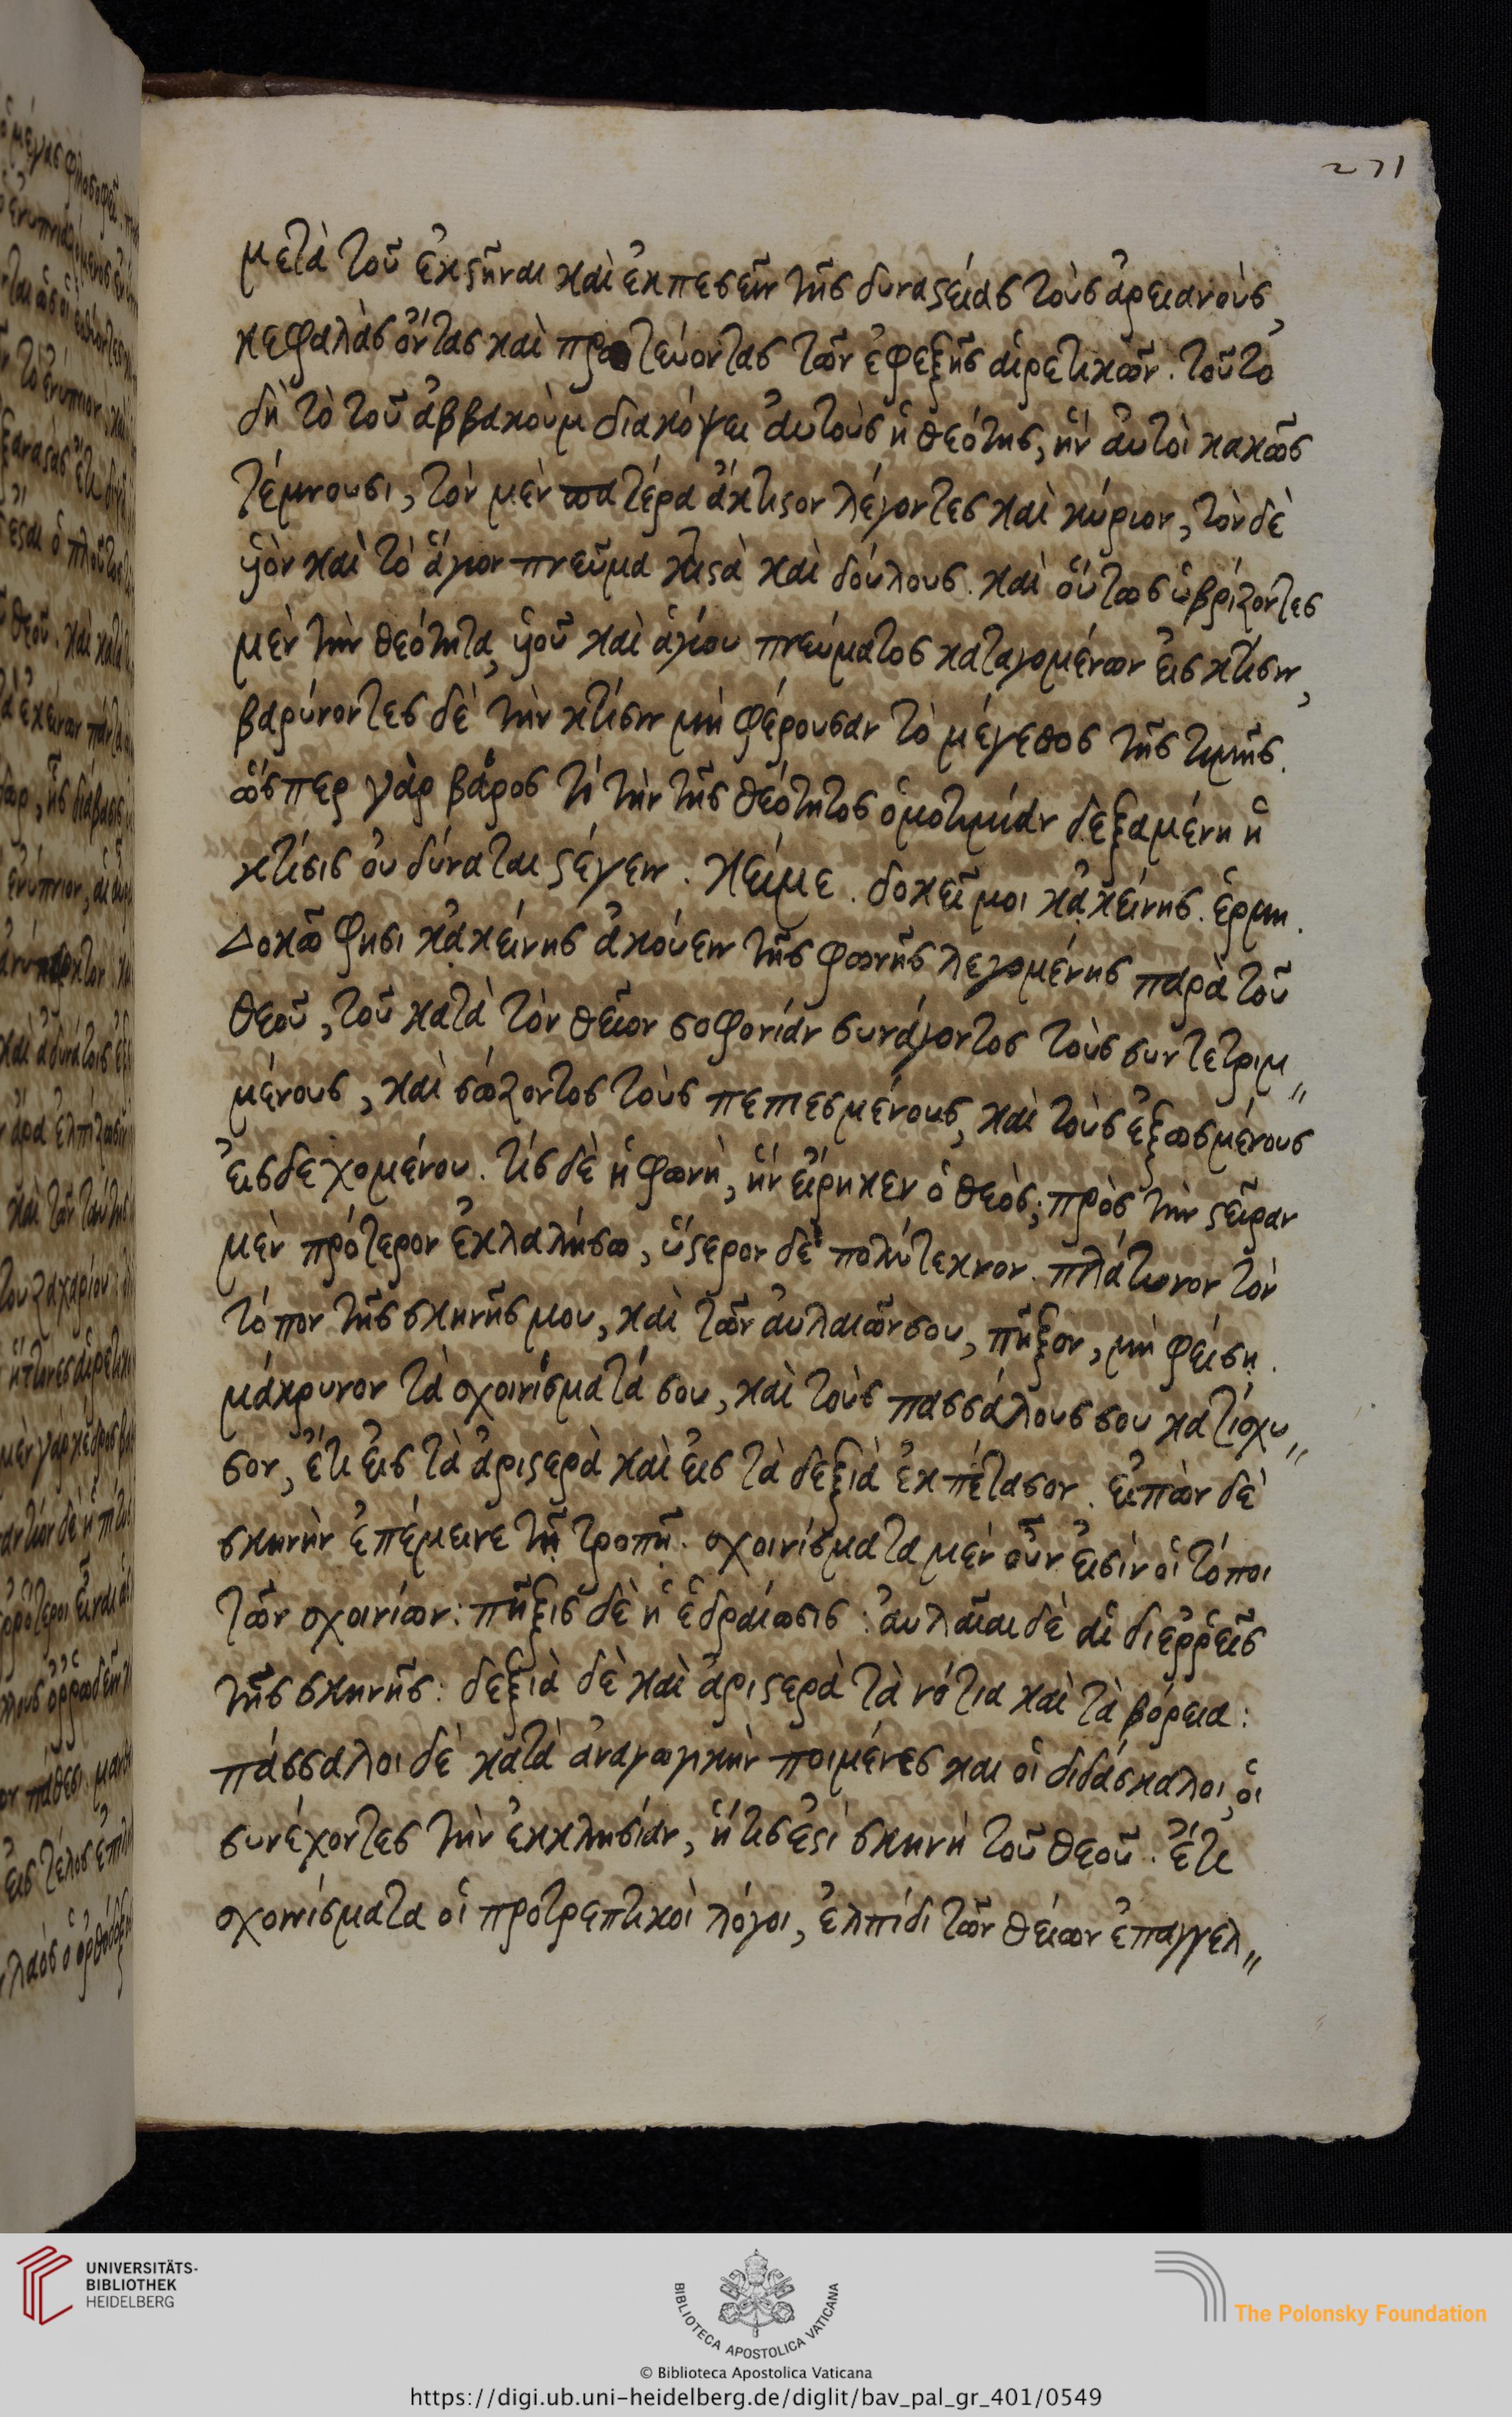 271
μετὰ τοῦ ἐκστῆναι καὶ ἐκπεσεῖν τῆς δυναστείας τοὺς ἀρειανούς,
κεφαλὰς ὄντας καὶ πρωτεύοντας τῶν ἐφεξῆς αἱρετικῶν. τοῦτο
δὴ τὸ τοῦ ἀββακοὺμ διακόψει αὐτοὺς ἡ θεότης, ἣν αὐτοὶ κακῶς
τέμνουσι, τὸν μὲν πατέρα ἄκτιστον λέγοντες καὶ κύριον, τὸν δὲ
υἱὸν καὶ τὸ ἅγιον πνεῦμα κτιστὰ καὶ δούλους. καὶ οὕτως ὑβρίζοντες
μὲν τὴν θεότητα, υἱοῦ καὶ ἁγίου πνεύματος καταγομένων εἰς κτίσιν,
βαρύνοντες δὲ τὴν κτίσιν μὴ φέρουσαν τὸ μέγεθος τῆς τιμῆς.
ὥσπερ γὰρ βάρος τί τὴν τῆς θεότητος ὁμοτιμίαν δεξαμένη ἡ
κτίσις οὐ δύναται στέγειν. κείμε. δοκεῖ μοι κἀκείνης. ἑρμη.
Δοκῶ φησι κἀκείνης ἀκούειν τῆς φωνῆς λεγομένης παρὰ τοῦ
θεοῦ, τοῦ κατὰ τὸν θεῖον σοφονίαν συνάγοντος τοὺς συντετριμ〃
μένους, καὶ σώζοντος τοὺς πεπιεσμένους, καὶ τοὺς ἐξωσμένους
εἰσδεχομένου. τίς δὲ ἡ φωνὴ, ἣν εἴρηκεν ὁ θεὸς; πρὸς τὴν στεῖραν
μὲν πρότερον ἐκλαλήσω, ὕστερον δὲ πολύτεκνον. πλάτυνον τὸν
τόπον τῆς σκηνῆς μου, καὶ τῶν αὐλαιῶν σου, πῆξον, μὴ φείσῃ.
μάκρυνον τὰ σχοινίσματά σου, καὶ τοὺς πασσάλους σου κατίσχυ〃
σον, ἔτι εἰς τὰ ἀριστερὰ καὶ εἰς τὰ δεξιὰ ἐκπέτασον. εἰπὼν δὲ
σκηνὴν ἐπέμεινε τῇ τροπῇ. σχοινίσματα μὲν οὖν εἰσὶν οἱ τόποι
τῶν σχοινίων: πῆξις δὲ ἡ ἑδραίωσις: αὐλαῖαι δὲ αἱ διέρρεις
τῆς σκηνῆς: δεξιὰ δὲ καὶ ἀριστερὰ τὰ νότια καὶ τὰ βόρεια:
πάσσαλοι δὲ κατὰ ἀναγωγικὴν ποιμένες και οἱ διδάσκαλοι, οἱ
συνέχοντες τὴν ἐκκλησίαν, ἥτις ἐστὶ σκηνὴ τοῦ θεοῦ. ἔτι
σχοινίσματα οἱ προτρεπτικοὶ λόγοι, ἐλπίδι τῶν θείων ἐπαγγελ〃
UNIVERSITÄTS-
BIBLIOTHEK
HEIDELBERG
BIBLIOTECA APOSTOLICA VATICANA
The Polonsky Foundation
© Biblioteca Apostolica Vaticana
https://digi.ub.uni-heidelberg.de/diglit/bav_pal_gr_401/0549